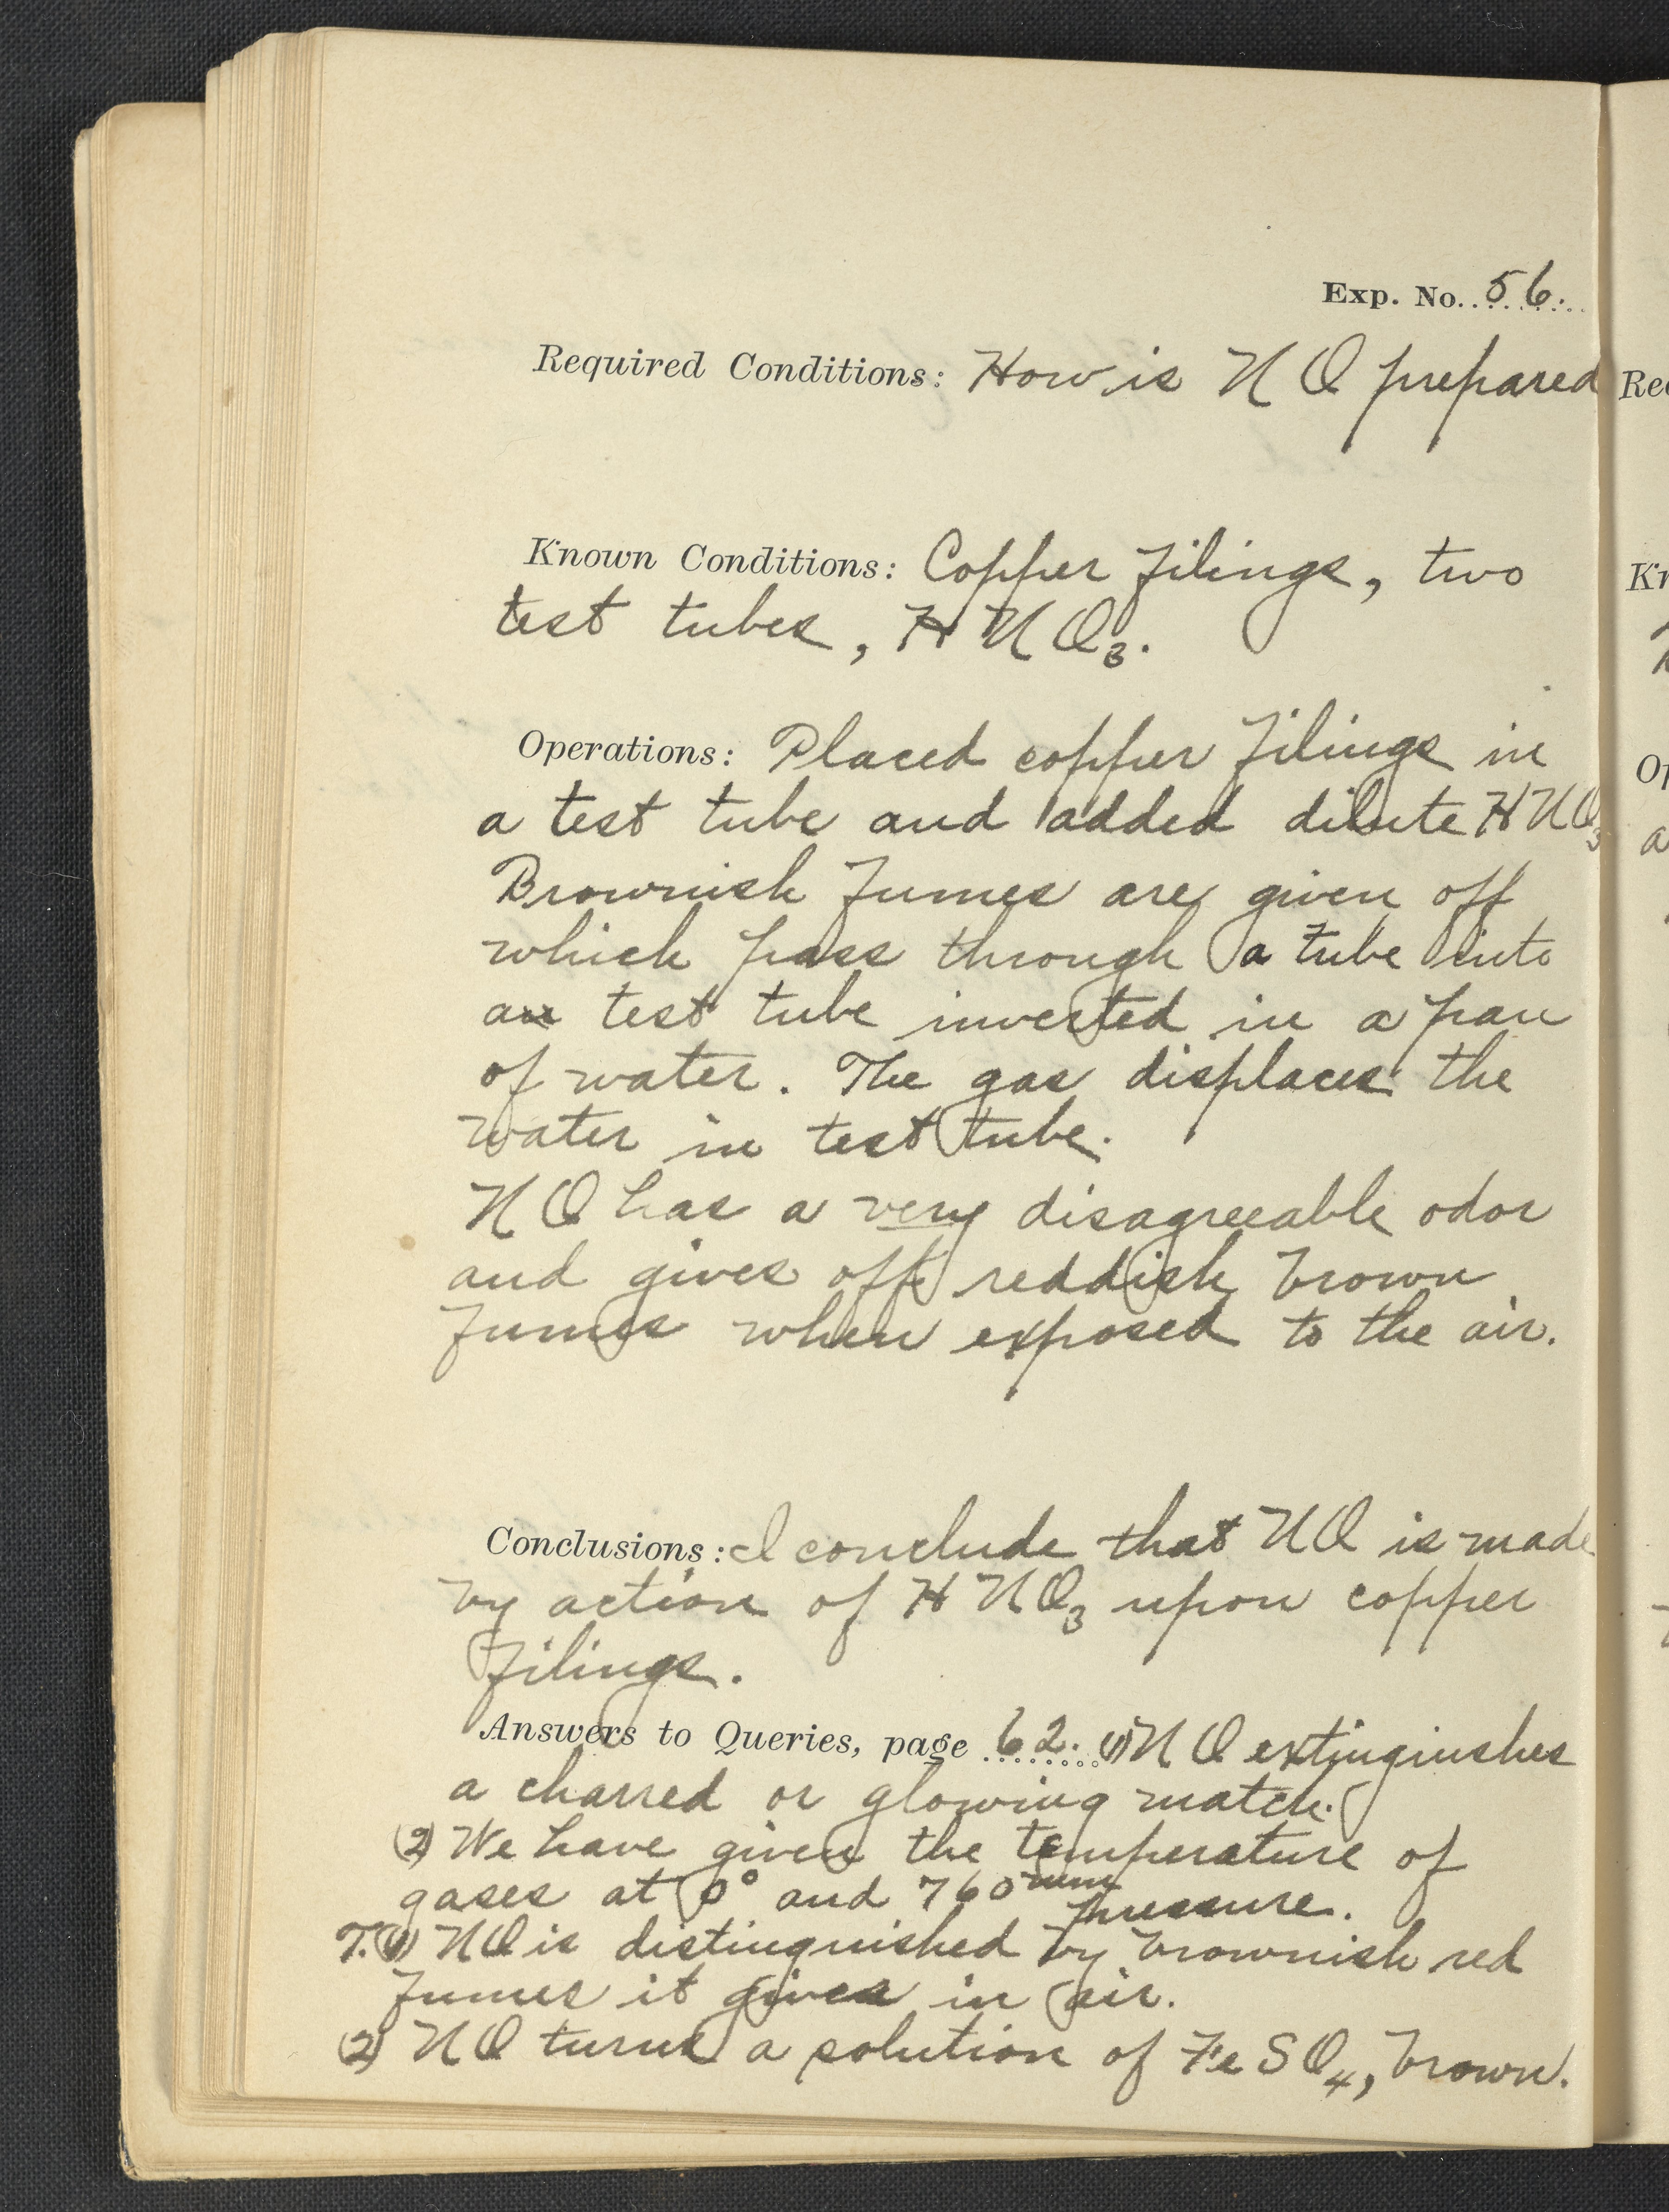 Exp. No. 56.
Required Conditions: How is NO prepared
Known Conditions: Copper filings, two
test tubes, HNO3.
Operations: Placed copper filings in
a test tube and added dilute HNO3
Brownish fumes are given off
which pass through a tube into
a test tube inverted in a pan
of water. The gas displaces the
water in test tube.
NO has a very disagreeable odor
and gives off reddish brown
fumes when exposed to the air.
Conclusions: I conclude that NO is made
by action of HNO3 upon copper
filings.
Answers to Queries, page 62. (1) NO extinginshes
a charred or glowing match.
(2) We have given the temperature of
gases at 0° and 760 mm
pressure.
T.(1) NO is distinguished by brownish red
fumes it gives in air.
(2) NO turns a solution of FeSO4, brown.
Re
Kn
Op
a